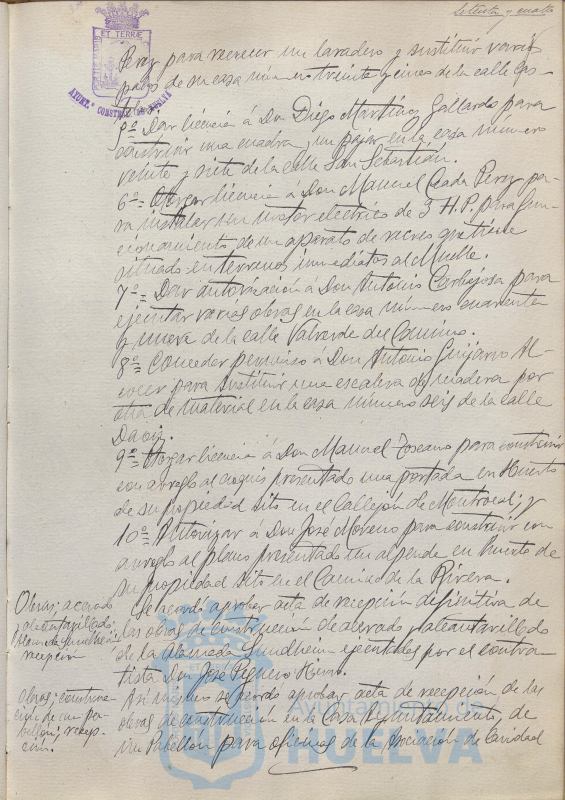 Setenta y cuatro
ET TERRÆ
AYUNT.º CONSTIT
Perez para recorrer un lavadero y sustituir varios
de su casa número treinta y cinco de la calle
5º= Dar licencia á Don Diego Martinez Gallardo para
construir una cuadra y un pajar en la casa número
veinte y siete de la calle San Sebastián.
6º= Otorgar licencia á Don Manuel Perez pa-
ra instalar un motor electrico de 3 H.P. para fun-
cionamiento de un aparato de recreo que tiene
situado en terrenos inmediatos al Muelle.
7º= Dar autorización á Don Antonio Carbajosa para
ejecutar varias obras en la casa número cuarenta
y nueve de la calle Valverde del Camino.
8º= Conceder permiso á Don Antonio Guijarro Al-
cocer para sustituir una escalera de madera por
otra de material en la casa número seis de la calle
Daoiz.
9º= Otorgar licencia á Don Manuel Toscano para construir
con arreglo al croquis presentado una portada en Huerto
de su propiedad sito en el Callejón de Montrocal; y
10º= Autorizar á Don José Moreno para construir con
arreglo al plano presentado un alpende en huerto de
su propiedad sito en el Camino de la Rivera.
Obras; acerado
y alcantarillado;
Alameda Sundheim;
recepción
Se acordó aprobar acta de recepción definitiva de
las obras de construcción de acerado y alcantarillado
de la Alameda Sundheim ejecutadas por el contra-
tista Don José Piquero
Obras; construc-
ción de un pa-
bellón; recep-
ción.
Asi mismo se acordo aprobar acta de recepción de las
obras de construcción en la Casa Ayuntamiento, de
un Pabellón para oficinas de la Asociación de Caridad
Ayuntamiento de
HUELVA